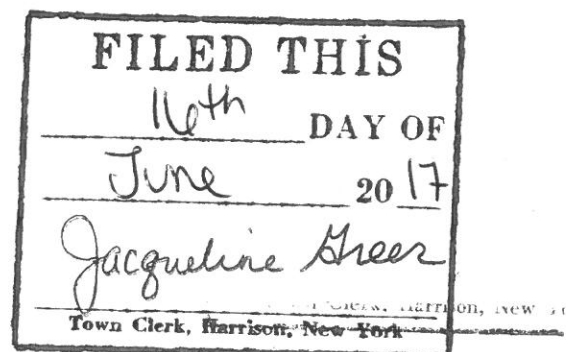 FILED THIS
16th DAY OF
June 20 17
Jacqueline Greer
Clerk, Harrison, New
Town Clerk, Harrison, New York